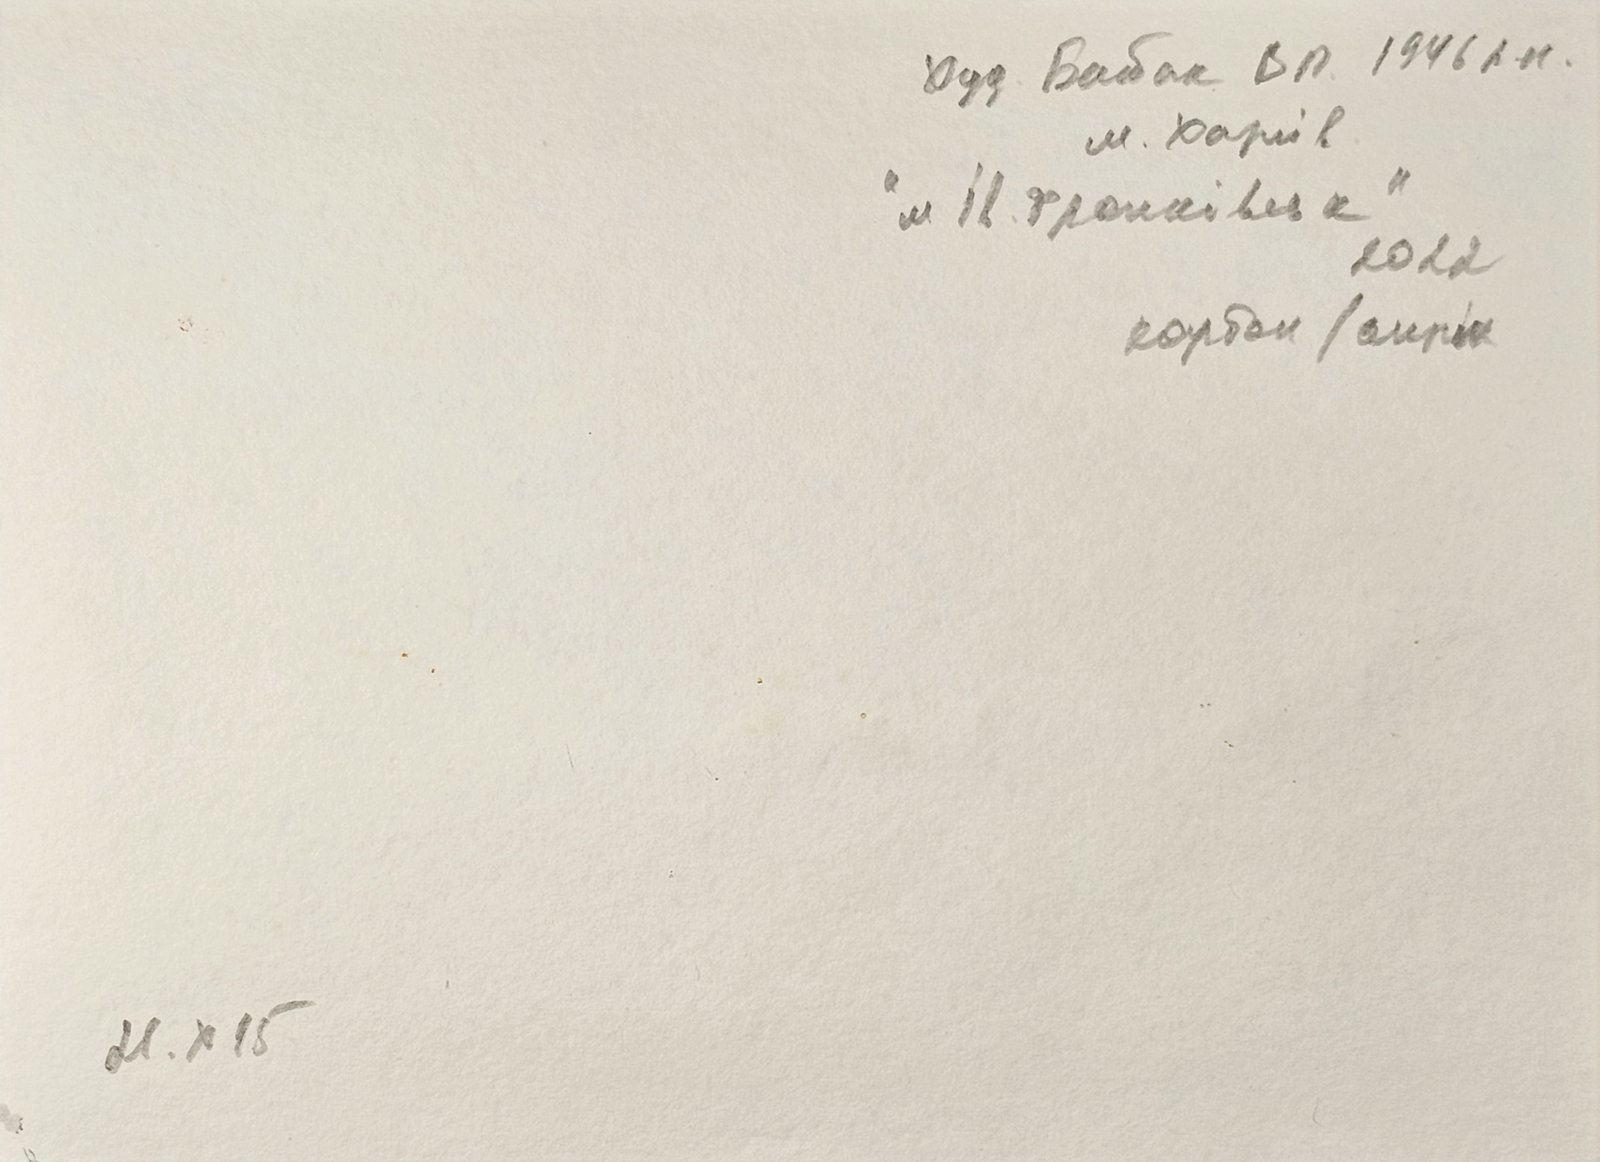 худ. Бабак В П. 1946 р.н.
м. Харків
"м Ів. Франківськ"
2022
картон / акрил
21. х 15